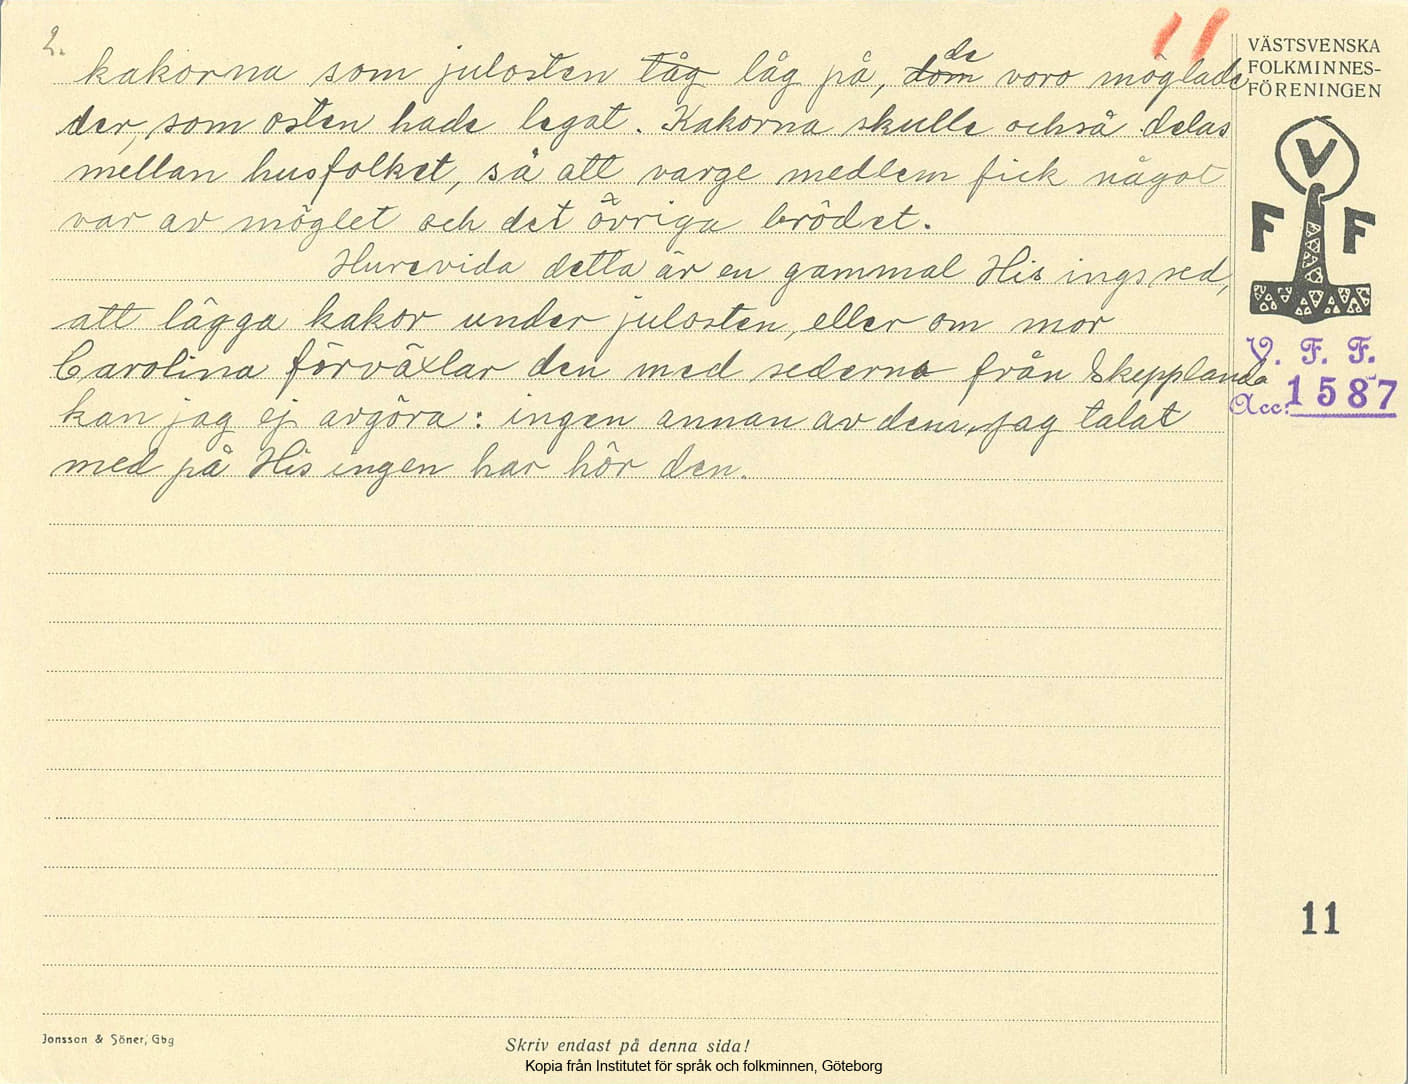 2.
11
kakorna som julosten låg låg på, dom de voro möglade
der, som osten hade legat. Kakorna skulle också delas
mellan husfolket, så att varge medlem fick något
var av möglet och det övriga brödet.
Hurevida detta är en gammal Hisingssed,
att lägga kakor under julosten, eller om mor
Carolina förväxlar den med sederna från Skepplanda
kan jag ej avgöra: ingen annan av dem, jag talat
med på Hisingen har hör den.
VÄSTSVENSKA
FOLKMINNES-
FÖRENINGEN
V
F F
V. F. F.
Acc: 1587
11
Jonsson & Söner, Gbg
Skriv endast på denna sida!
Kopia från Institutet för språk och folkminnen, Göteborg